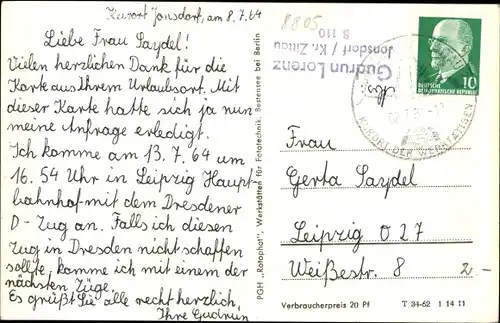 Kurort Jonsdorf, am 8.7.64
Liebe Frau Saydel!
Vielen herzlichen Dank für die
Karte aus Ihrem Urlaubsort. Mit
dieser Karte hatte sich ja nun
meine Anfrage erledigt.
Ich komme am 13.7.64 um
16.54 Uhr in Leipzig Haupt-
bahnhof mit dem Dresdener
D-Zug an. Falls ich diesen
Zug in Dresden nicht schaffen
sollte, komme ich mit einem der
nächsten Züge.
Es grüßt Sie alle recht herzlich,
Ihre Gudrun
PGH „Rotophot", Werkstätten für Fototechnik, Bestensee bei Berlin
8805
Gudrun Lorenz
Jonsdorf / Kr. Zittau
S 110
Abs.:
10
DEUTSCHE
DEMOKRATISCHE REPUBLIK
KURORT DER WERKTÄTIGEN
Frau
Gerta Saydel
Leipzig O 27
Weißestr. 8
2.-
Verbraucherpreis 20 Pf
T 34-62 1 14 11